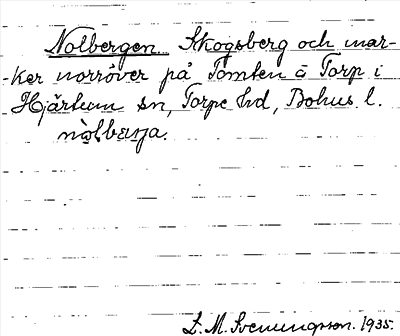 Nolbergen. Skogsberg och mar-
-ker norröver på Tomten å Torp i
Hjärtum sn, Torpe hd, Bohus l.
nòlbærja.
L. M. Svenungsson. 1935.